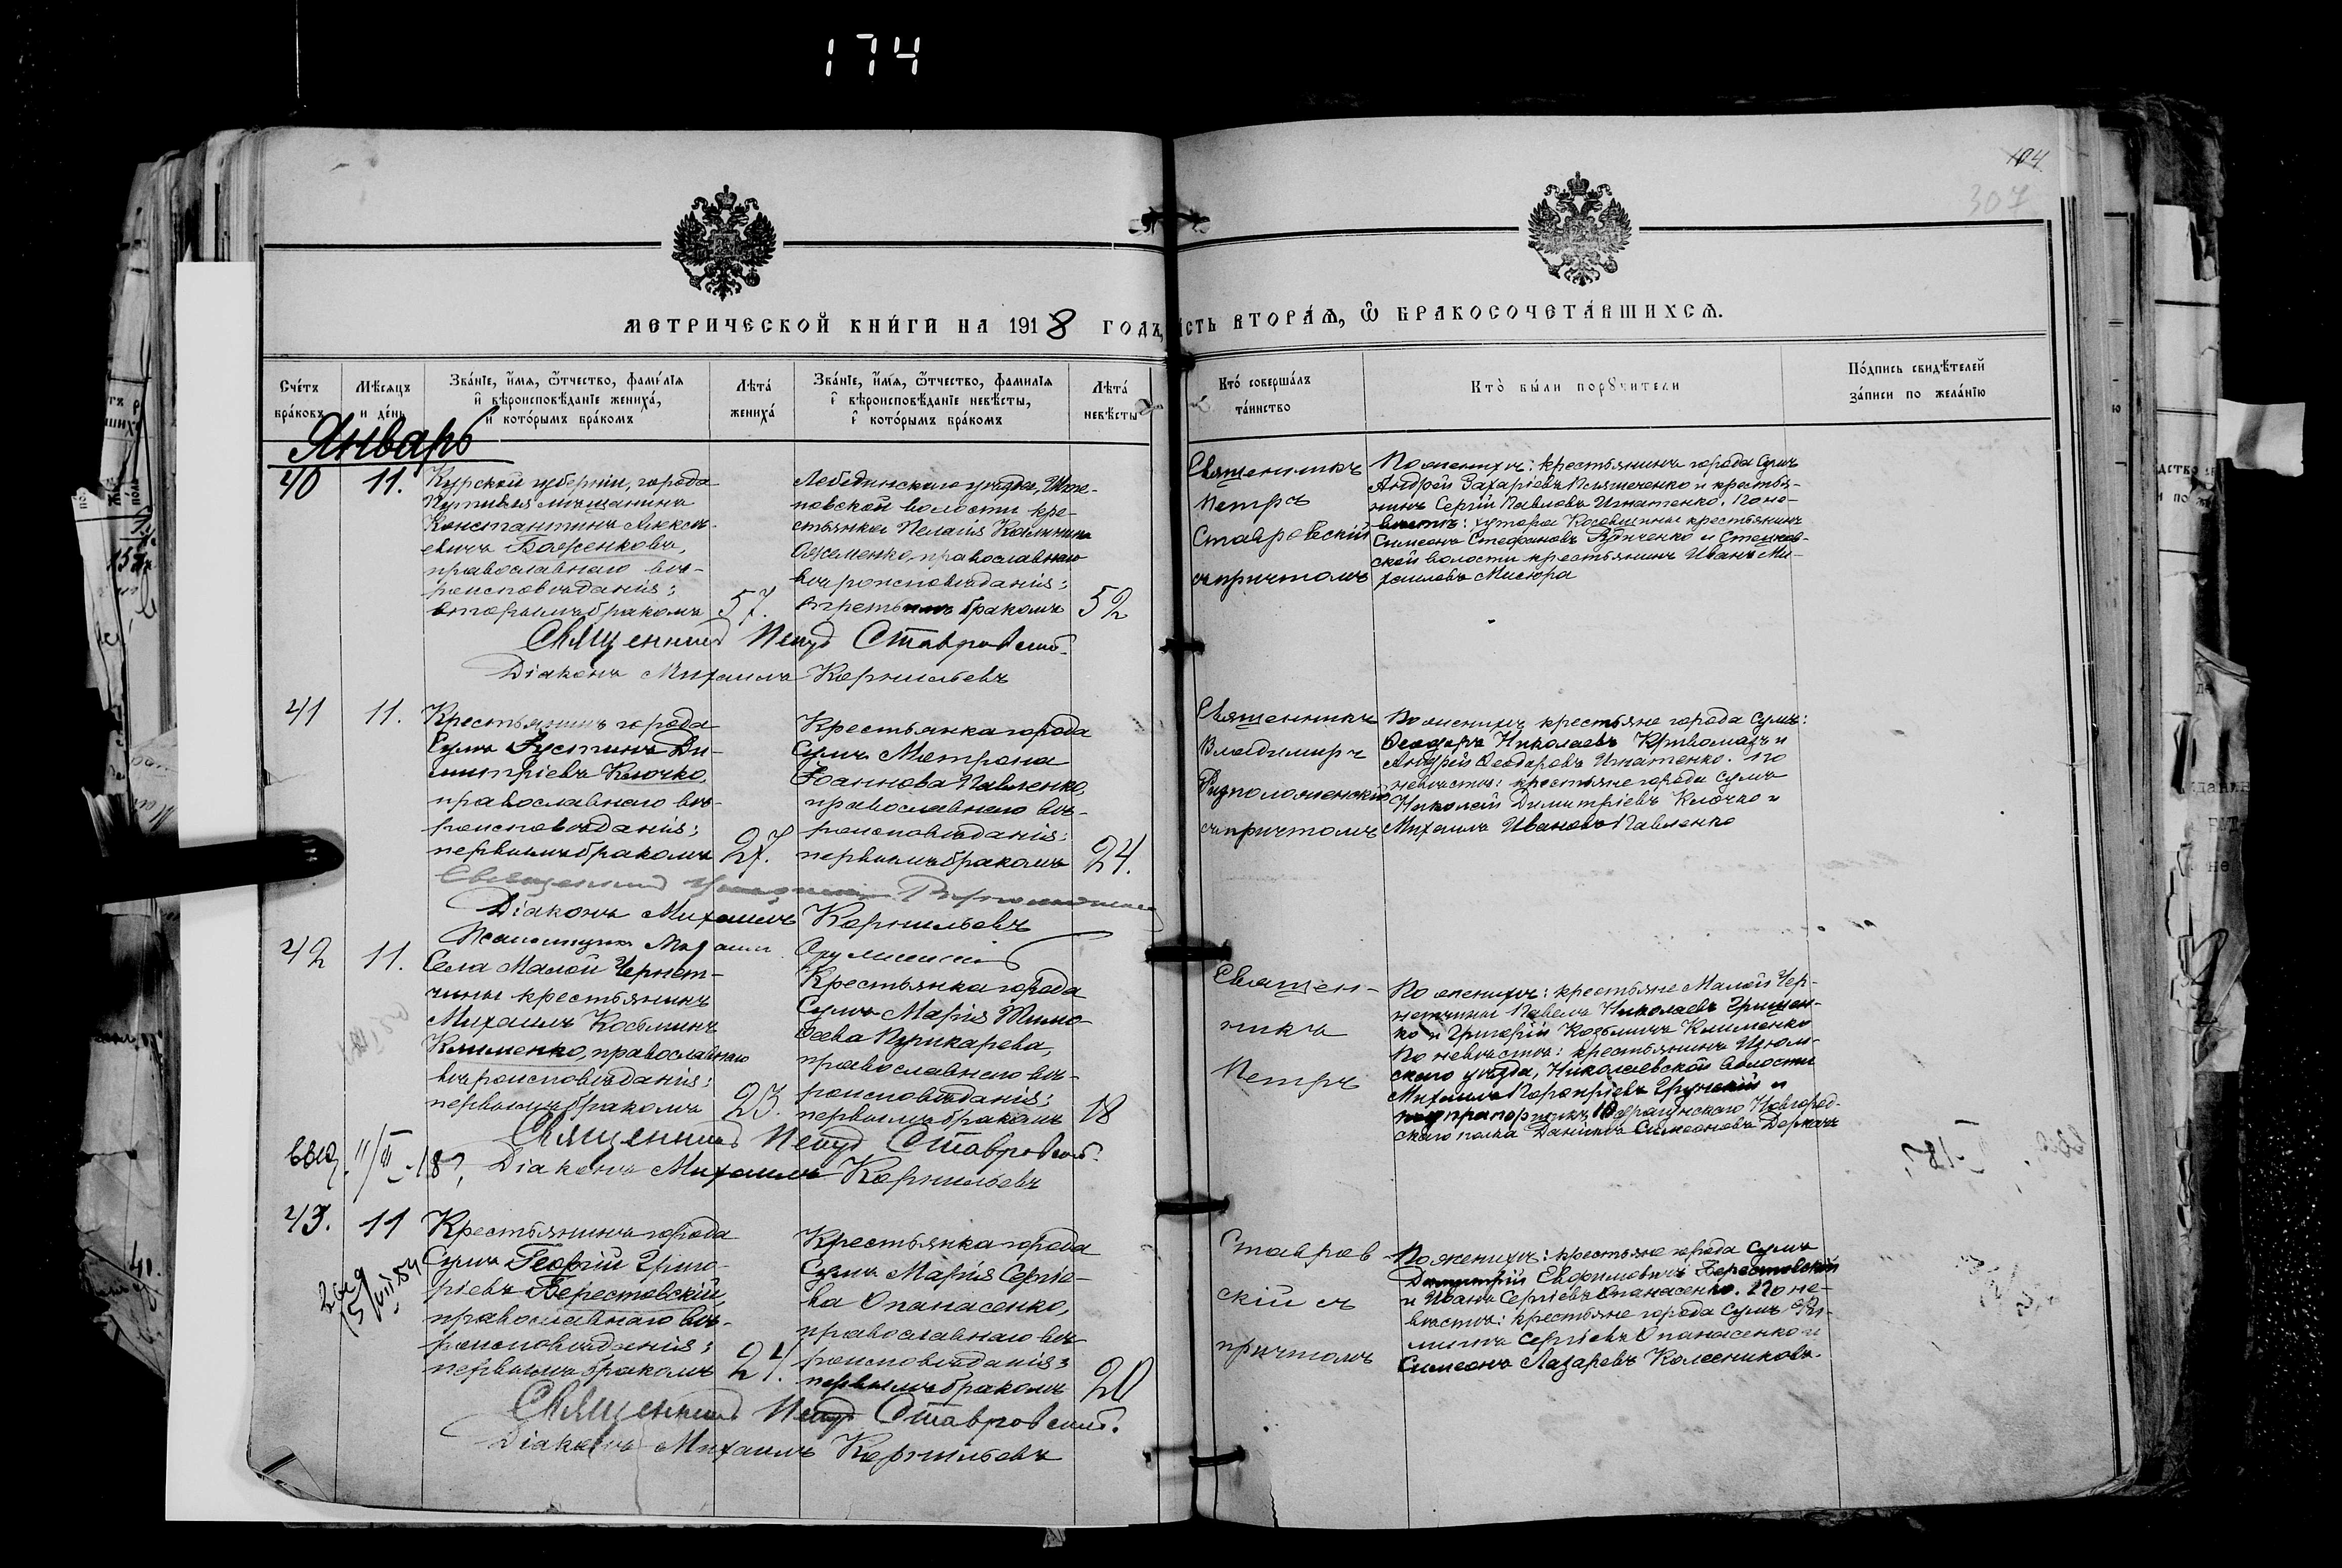 174
104
307
МЕТРИЧЕСКОЙ КНИГИ НА 1918 ГОДЪ,
СТЬ ВТОРАѦ, Ѿ БРАКОСОЧЕТАВШИХСѦ.
Счетъ браковъ
Мѣсяцъ и день
Званіе, имя, отчество, фамилія и вѣроисповѣданіе жениха, и которымъ бракомъ
Лѣта жениха
Званіе, имя, отчество, фамилія и вѣроисповѣданіе невѣсты, и которымъ бракомъ
Лѣта невѣсты
Кто совершалъ таинство
Кто были поручители
Подпись свидѣтелей записи по желанію
Январь
40
11.
Курской губерніи, города
Путивля мѣщанинъ
Константинъ Алексѣ-
евичъ Баженковъ,
православнаго вѣ-
роисповѣданія;
вторымъ бракомъ
57.
Лебединскаго уѣзда,Ште-
повской волости кре-
стьянка Пелагія Калинина
православнаго
вѣроисповѣданія;
третьимъ бракомъ
52
Священникъ
Петръ
Ставровскій
съ причтомъ
По женихѣ: крестьянинъ города Сумъ
Андрей Захаріевъ и крестья-
нинъ Сергій Павловъ Игнатенко. По не-
вѣстѣ: хутора Косовщины крестьянинъ
Симеонъ Стефановъ и
ской волости крестьянинъ Иванъ Ми-
хаиловъ Мисюра
Священникъ Петръ Ставровскій.
Діаконъ Михаилъ Корнильевъ
41
11.
Крестьянинъ города
Сумъ Іустинъ Ди-
митріевъ Клочко,
православнаго вѣ-
роисповѣданія;
первымъ бракомъ
27.
Крестьянка города
Сумъ Матрона
Іоаннова Павленко,
православнаго вѣ-
роисповѣданія;
первымъ бракомъ
24.
Священникъ
Владимиръ
Ризположенскій
съ причтомъ
По женихѣ крестьяне города Сумъ:
Ѳеодоръ Николаевъ и
Андрей Ѳеодоровъ Игнатенко. По
невѣстѣ: крестьяне города Сумъ
Николай Димитріевъ Клочко и
Михаилъ Ивановъ Павленко
Священникъ
Діаконъ Михаилъ Корнильевъ
Псаломщикъ
42
11.
Села Малой Чернет-
чины крестьянинъ
Михаилъ Косьминъ
Клименко, православнаго
вѣроисповѣданія;
первымъ бракомъ
23.
Крестьянка города
Сумъ Марія Тимо-
ѳеева Пушкарева,
православнаго вѣ-
роисповѣданія;
первымъ бракомъ
18
Священ-
никъ
Петръ
По женихѣ: крестьяне Малой Чер-
нетчины Павелъ Николаевъ Грищен-
ко и Григорій Козьмичъ Клименко
По невѣстѣ: крестьянинъ Изюм-
скаго уѣзда, Николаевской волости
Михаилъ Порфиріевъ и
подпрапорщикъ 10 драгунскаго Новгород-
скаго полка Даніилъ Симеоновъ Деркачъ
Священникъ Петръ Ставровскій.
выд. 11/III-18?
Діаконъ Михаилъ Корнильевъ
43.
11
Крестьянинъ города
Сумъ Георгій Григо-
ріевъ Берестовскій
православнаго вѣ-
роисповѣданія;
первымъ бракомъ
24.
Крестьянка города
Сумъ Марія Сергіе-
ва Опанасенко,
православнаго вѣ-
роисповѣданія;
первымъ бракомъ
20
Ставров-
скій съ
причтомъ
По женихѣ: крестьяне города Сумъ
Димитрій Евфимовичъ Берестовскій
и Иванъ Сергіевъ Опанасенко. По не-
вѣстѣ: крестьяне города Сумъ Фи-
липпъ Сергіевъ Опанасенко и
Симеонъ Лазаревъ Колесниковъ.
Священникъ Петръ Ставровскій.
Діаконъ Михаилъ Корнильевъ